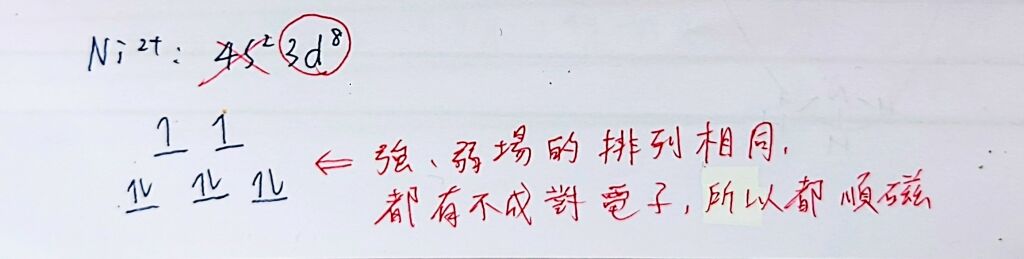 Ni²⁺: 4s² 3d⁸
1 1
⥮ ⥮ ⥮ ⇐ 強、弱場的排列相同.
都有不成對電子,所以都順磁